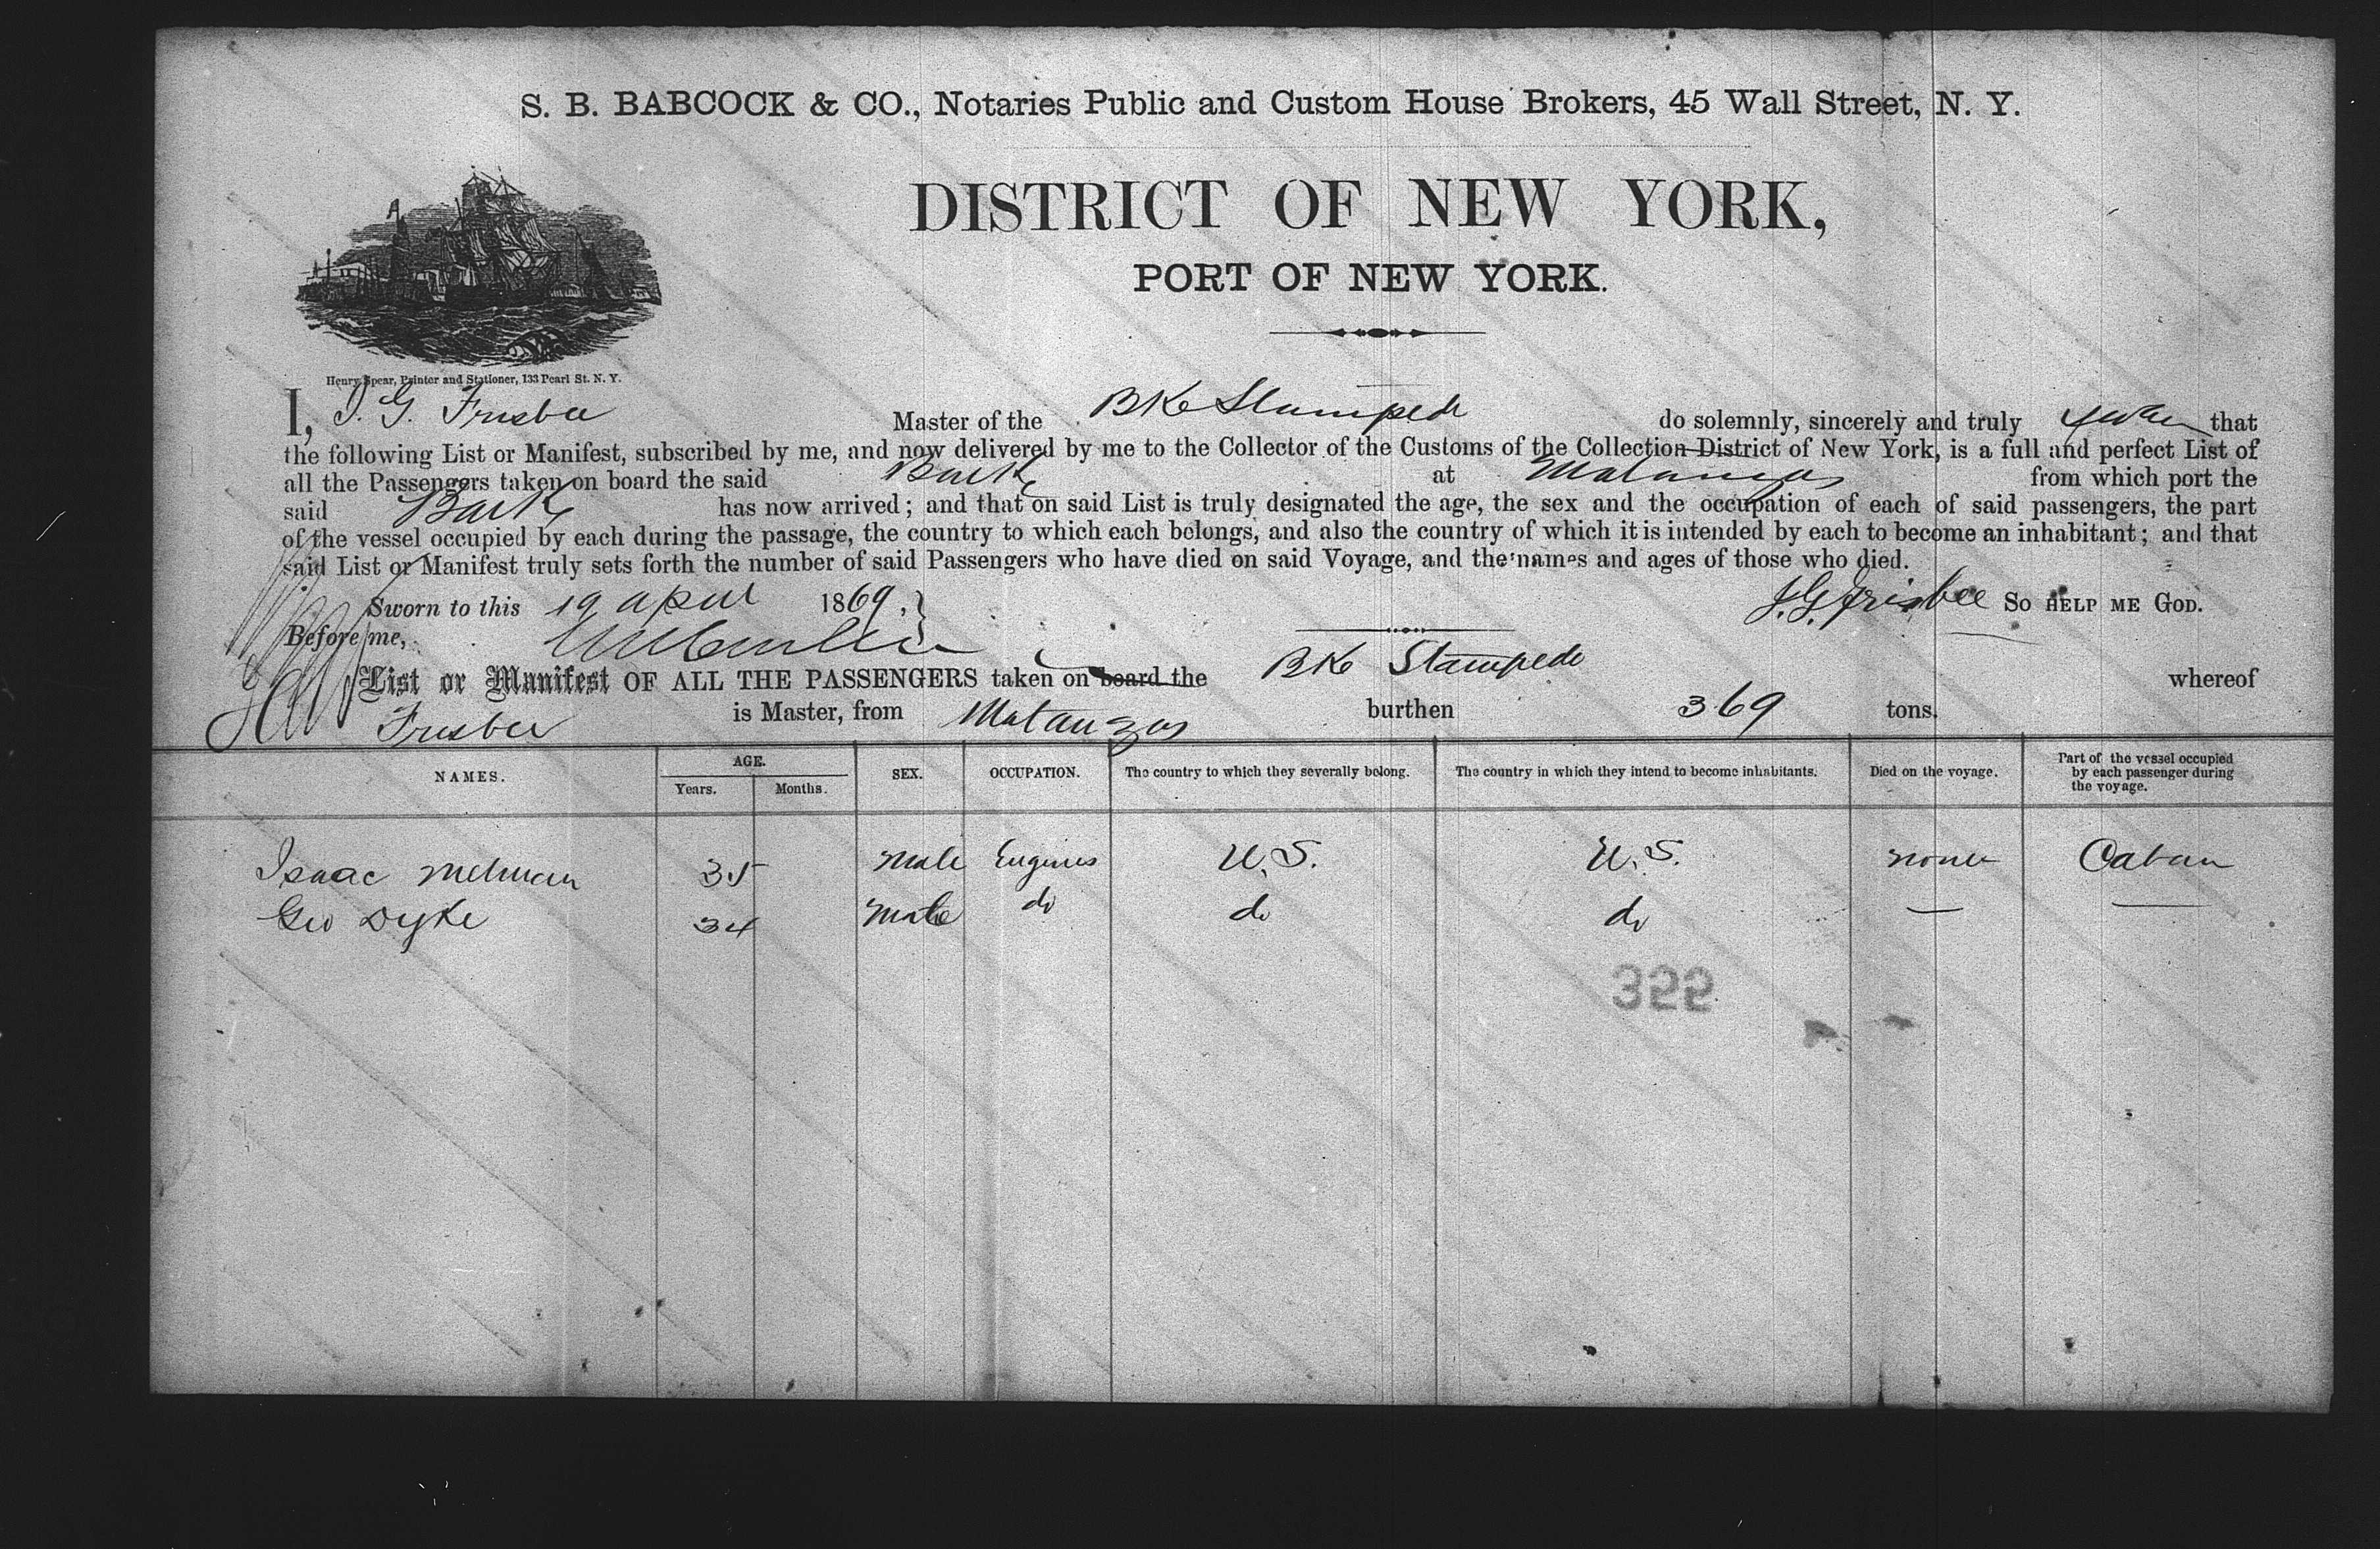 S. B. BABCOCK & CO., Notaries Public and Custom House Brokers, 45 Wall Street, N. Y.
DISTRICT OF NEW YORK,
PORT OF NEW YORK.
Henry Spear, Printer and Stationer, 133 Pearl St. N. Y.
I, J. G. Frisbee Master of the Bke Stampede do solemnly, sincerely and truly swear that
the following List or Manifest, subscribed by me, and now delivered by me to the Collector of the Customs of the Collection District of New York, is a full and perfect List of
all the Passengers taken on board the said Bark at Matanzas from which port the
said Bark has now arrived; and that on said List is truly designated the age, the sex and the occupation of each of said passengers, the part
of the vessel occupied by each during the passage, the country to which each belongs, and also the country of which it is intended by each to become an inhabitant; and that
said List or Manifest truly sets forth the number of said Passengers who have died on said Voyage, and the names and ages of those who died.
Sworn to this 19 april 1869, J. G. Frisbee SO HELP ME GOD.
Before me,
List or Manifest OF ALL THE PASSENGERS taken on board the Bke Stampede whereof
Frisbee is Master, from Matanzas burthen 369 tons.
NAMES. AGE. Years. Months. SEX. OCCUPATION. The country to which they severally belong. The country in which they intend to become inhabitants. Died on the voyage. Part of the vessel occupied by each passenger during the voyage.
Isaac 35 Male Engineer U.S. U.S. none Cabin
Geo Dyke 34 Male do do do — —
322